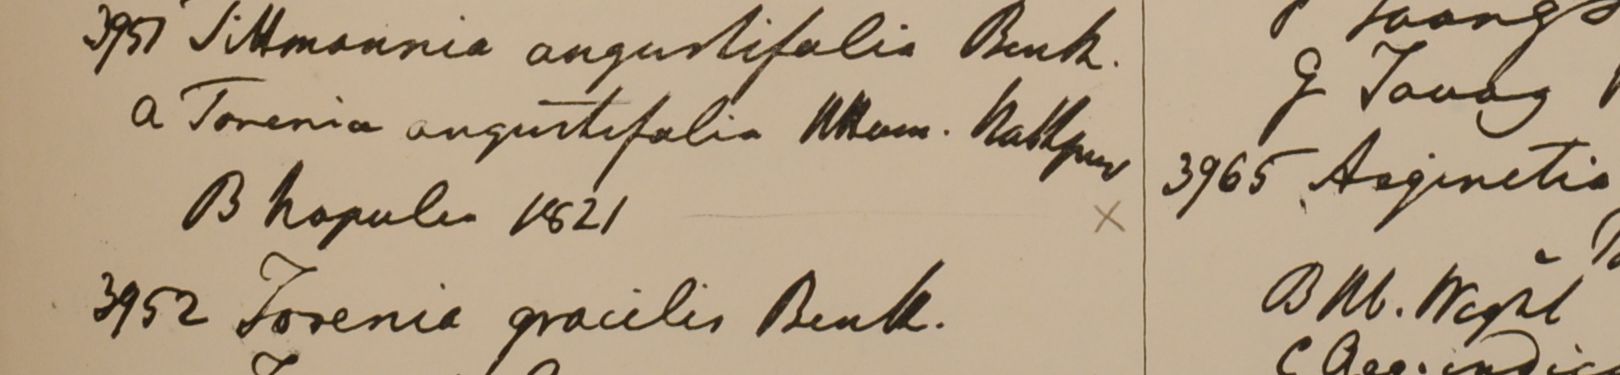 3951 Tittmannia angustifolia Benth.
a Torenia angustifolia HHam. Nathpur
B Napulia 1821
3952 Torenia gracilis Benth.
G Tavoy
3965 Aeginetia
B Hb. Wight
C Aeg. indica